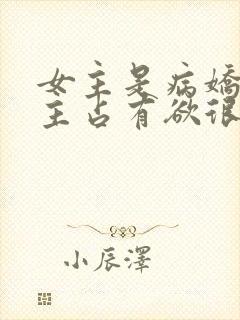 女主是病嬌
主占有欲很
小辰澤